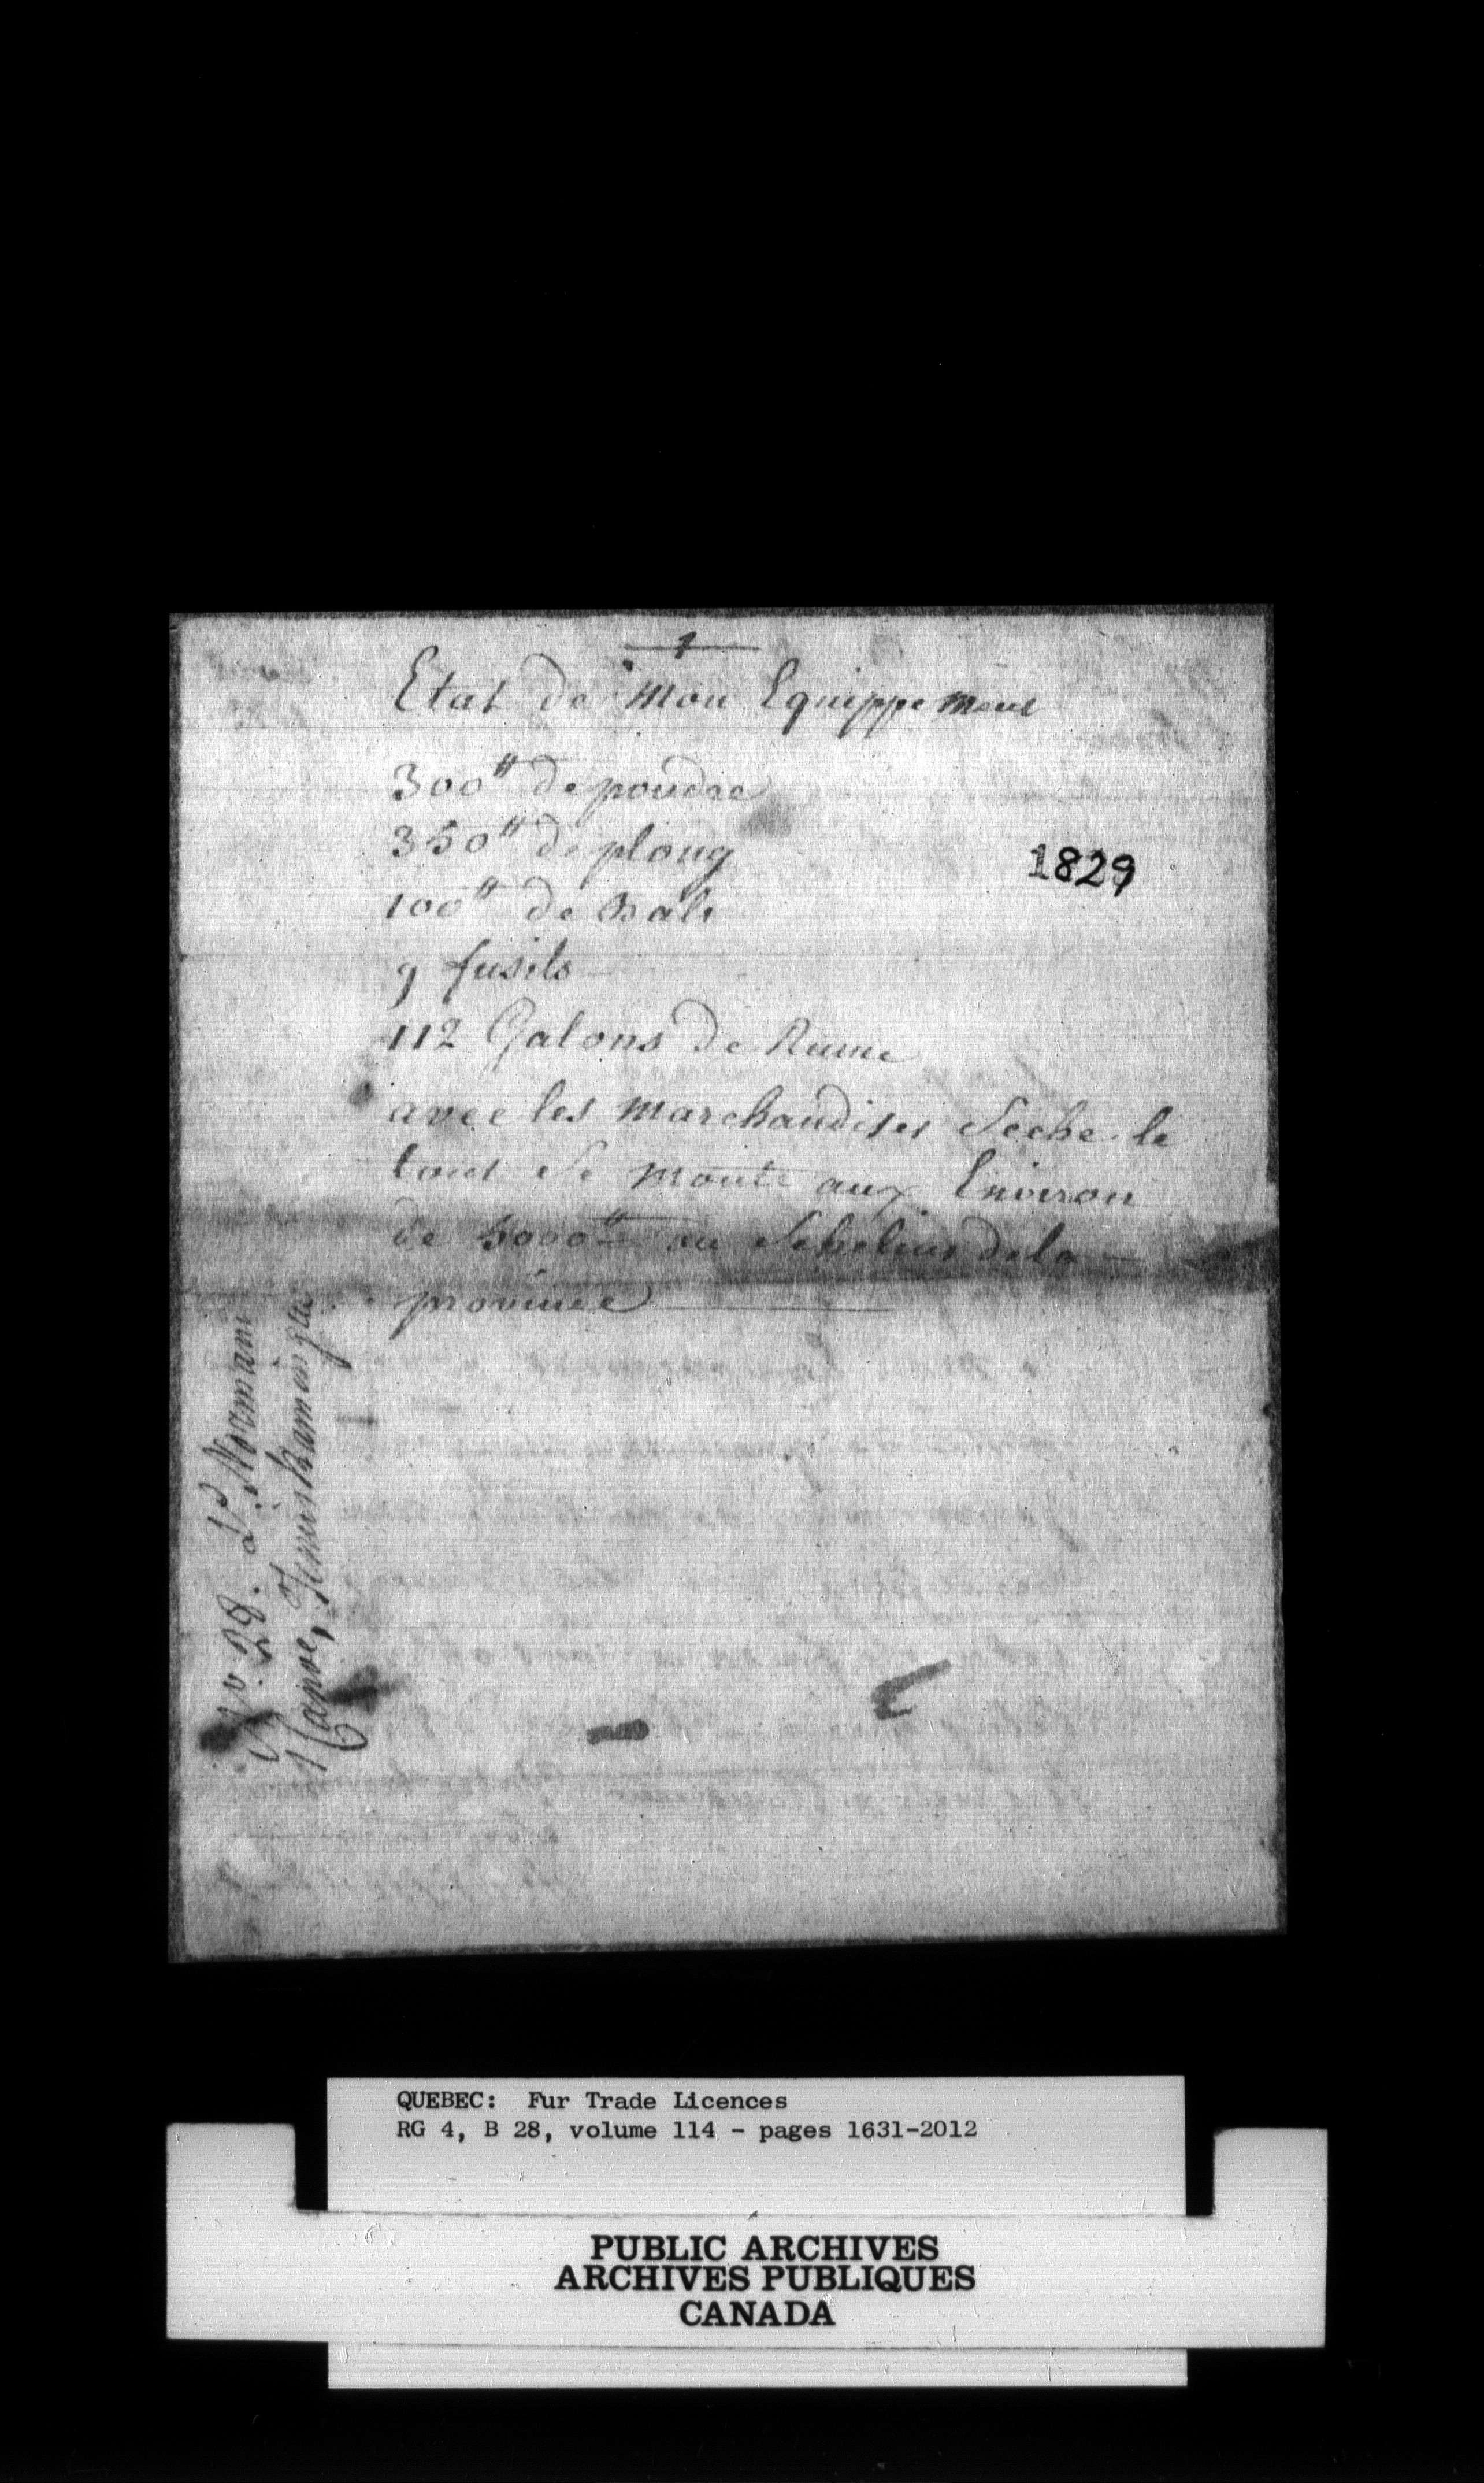 1
Etat de mon Equippement
300# de poudre
350# de ploug
1829
100# de Bale
9 fusils
112 Galons de Rume
avec les marchandises Seche le
tout Se monte aux Environ
de 5000# ou Schelins de la
province
No. 28. à P. Normam
1 Canoe, Temiskamingue
QUEBEC: Fur Trade Licences
RG 4, B 28, volume 114 - pages 1631-2012
PUBLIC ARCHIVES
ARCHIVES PUBLIQUES
CANADA